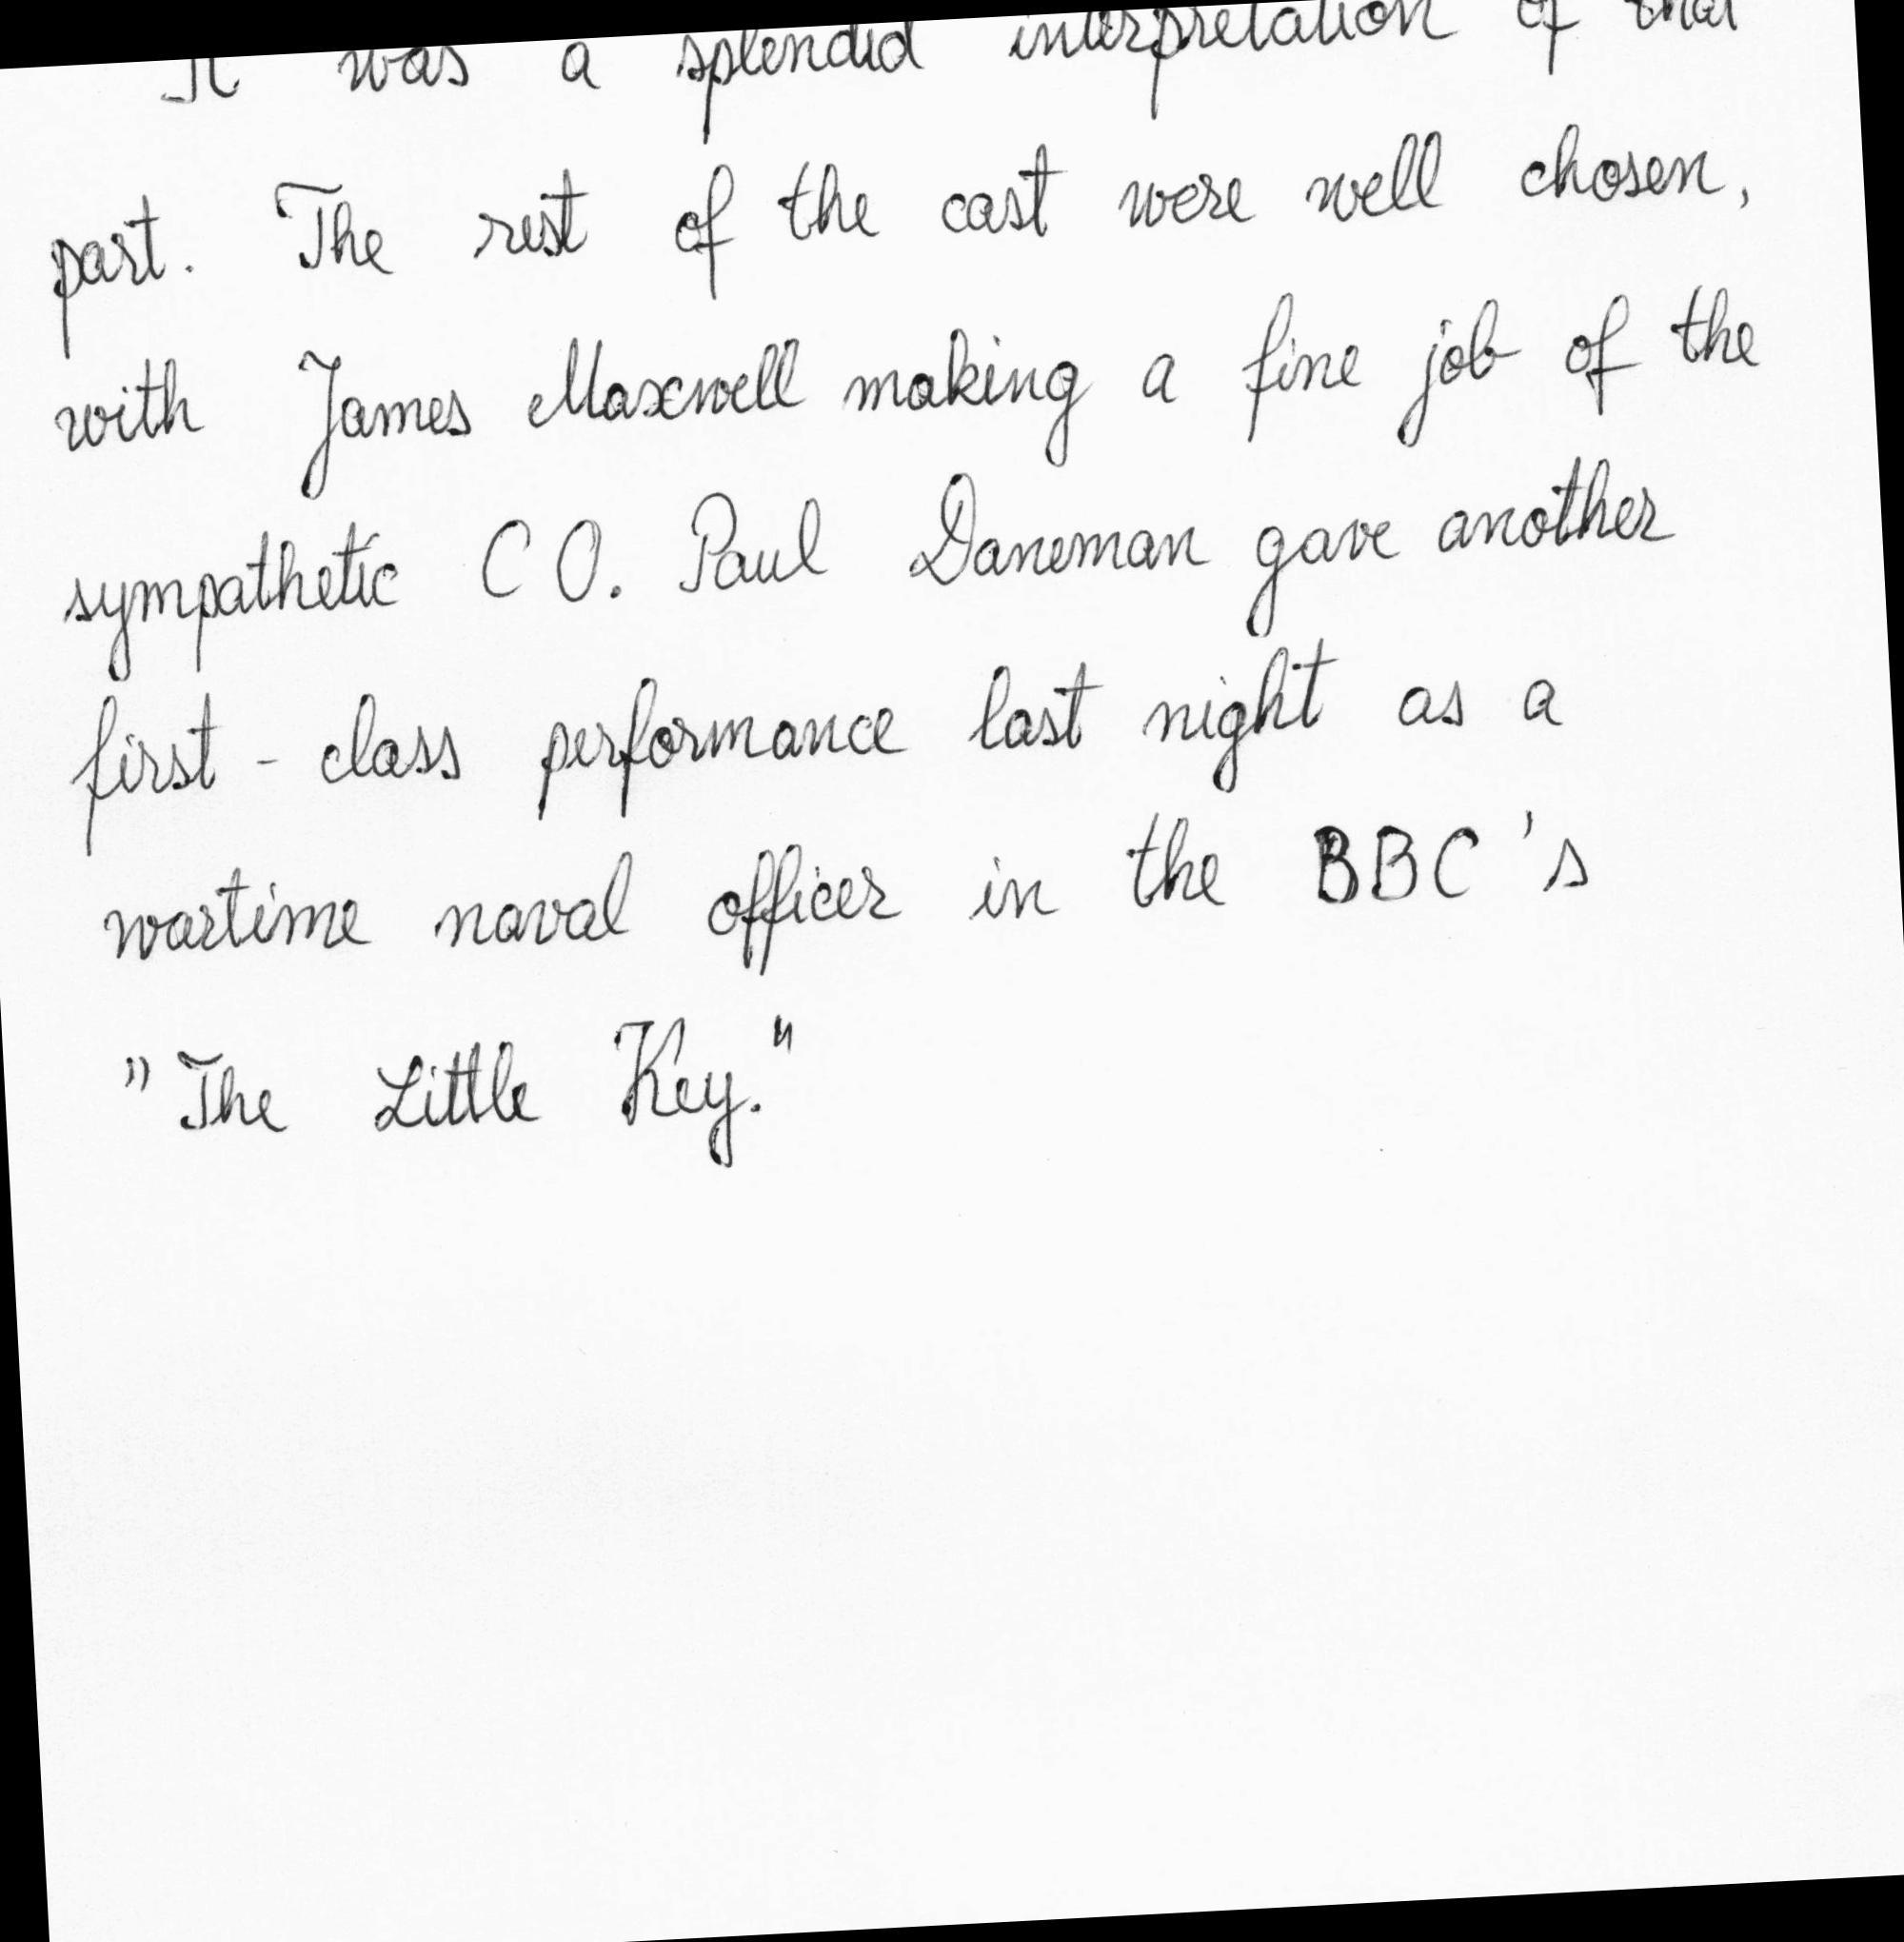 It was a splendid interpretation of that
part. The rest of the cast were well chosen,
with James Maxwell making a fine job of the
sympathetic CO. Paul Daneman gave another
first - class performance last night as a
wartime naval officer in the BBC's
"The Little Key."